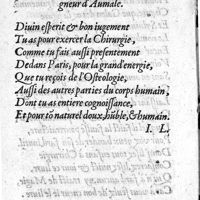 gneur d'Aumale.
Diuin esperit & bon iugement
Tu as pour exercer ta Chirurgie,
Comme tu fais aussi presentement
Dedans Paris, pour la grand'energie,
Que tu reçois de l'Osteologie,
Aussi des autres parties du corps humain,
Dont tu as entiere cognoissance,
Et pour tõ naturel doux, hũble, & humain.
I. L.